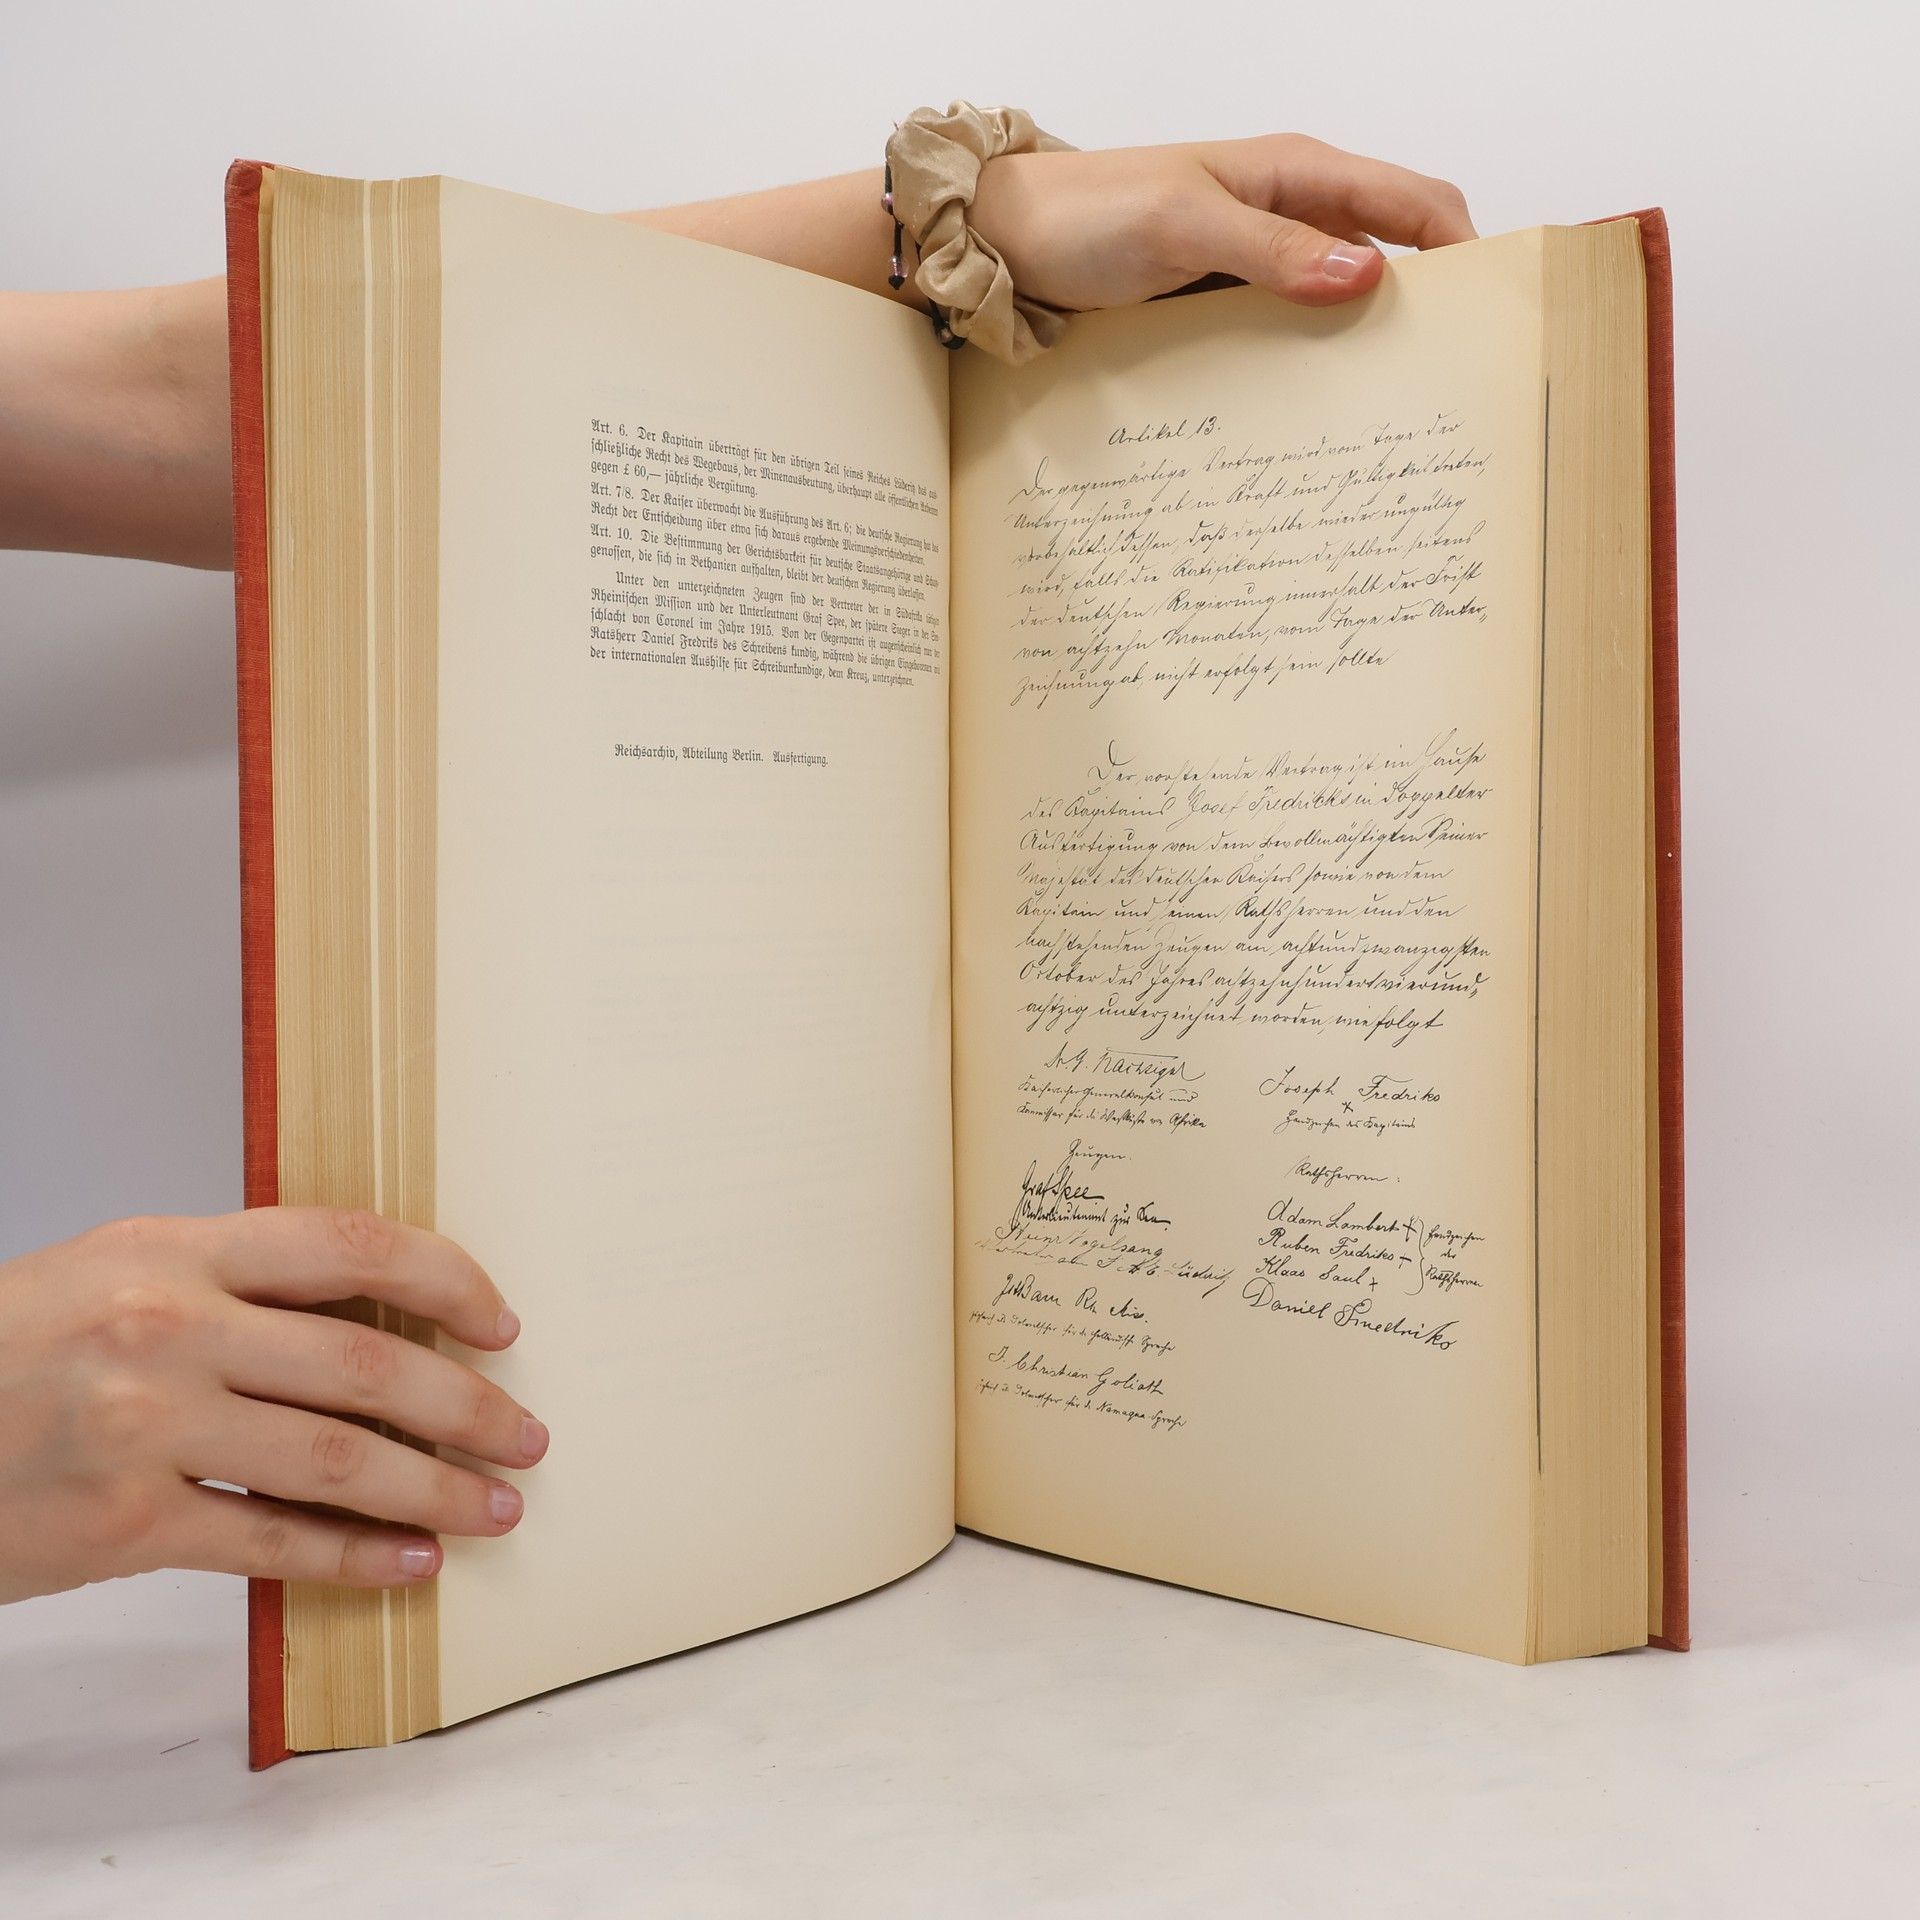 Art. 6. Der Kapitain überträgt für den übrigen Teil seines Reiches Lüderitz das aus-
schließliche Recht des Wegebaus, der Minenausbeutung, überhaupt alle öffentlichen Arbeiten
gegen £ 60,— jährliche Vergütung.
Art. 7/8. Der Kaiser überwacht die Ausführung des Art. 6; die deutsche Regierung hat das
Recht der Entscheidung über etwa sich daraus ergebende Meinungsverschiedenheiten.
Art. 10. Die Bestimmung der Gerichtsbarkeit für deutsche Staatsangehörige und Schutz-
genossen, die sich in Bethanien aufhalten, bleibt der deutschen Regierung überlassen.
Unter den unterzeichneten Zeugen sind der Vertreter der in Südafrika tätigen
Rheinischen Mission und der Unterleutnant Graf Spee, der spätere Sieger in der See-
schlacht von Coronel im Jahre 1915. Von der Gegenpartei ist augenscheinlich nur der
Ratsherr Daniel Fredriks des Schreibens kundig, während die übrigen Eingeborenen mit
der internationalen Aushilfe für Schreibunkundige, dem Kreuz, unterzeichnen.
Reichsarchiv, Abteilung Berlin. Ausfertigung.
Artikel 13.
Der gegenwärtige Vertrag wird vom Tage der
Unterzeichnung ab in Kraft und Gültigkeit treten,
vorbehaltlich dessen, daß derselbe wieder ungültig
wird, falls die Ratifikation desselben seitens
der deutschen Regierung innerhalb der Frist
von achtzehn Monaten, vom Tage der Unter-
zeichnung ab, nicht erfolgt sein sollte
Der vorstehende Vertrag ist im Hause
des Kapitains Josef Fredricks in doppelter
Ausfertigung von dem Bevollmächtigten Seiner
Majestät des deutschen Kaisers sowie von dem
Kapitain und seinen Rathsherren und den
nachstehenden Zeugen am achtundzwanzigsten
October des Jahres achtzehnhundertvierund-
achtzig unterzeichnet worden, wie folgt
Dr. G. Nachtigal
Kaiserlicher Generalkonsul und
Kommissar für die Westküste von Afrika
Joseph Fredriks
Handzeichen des Kapitains
Zeugen.
Graf Spee
Unterlieutenant zur See.
Heinr Vogelsang
Vertreter von F. A. E. Lüderitz
Joh Bam Rh. Miss.
zugleich als Dolmetscher für die holländische Sprache
J. Christian Goliath
zugleich als Dolmetscher für die Namaqua-Sprache
Rathsherren:
Adam Lambert +
Ruben Fredriks +
Klaas Saul +
Handzeichen
der
Rathsherren
Daniel Fredriks